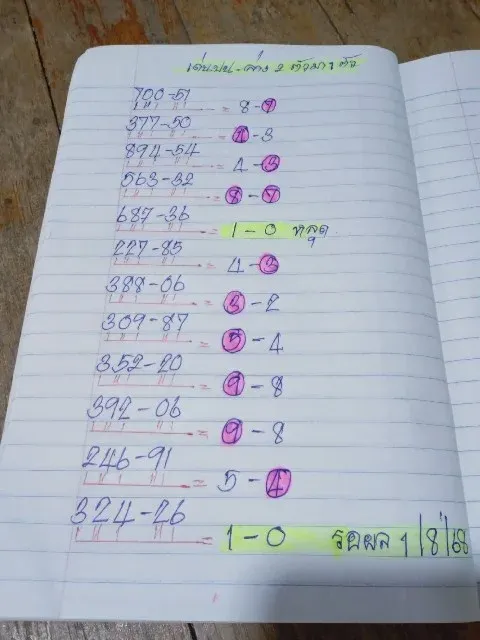 เด่นบน-ล่าง 2 ตัวมา 1 ตัว
700-51 = 8-7
377-50 = 1-3
894-54 = 4-3
563-32 = 8-7
687-36 = 1-0 หลุด
227-85 = 4-3
388-06 = 3-2
309-87 = 5-4
352-20 = 9-8
392-06 = 9-8
246-91 = 5-4
324-26 = 1-0 รอผล 1/8/68